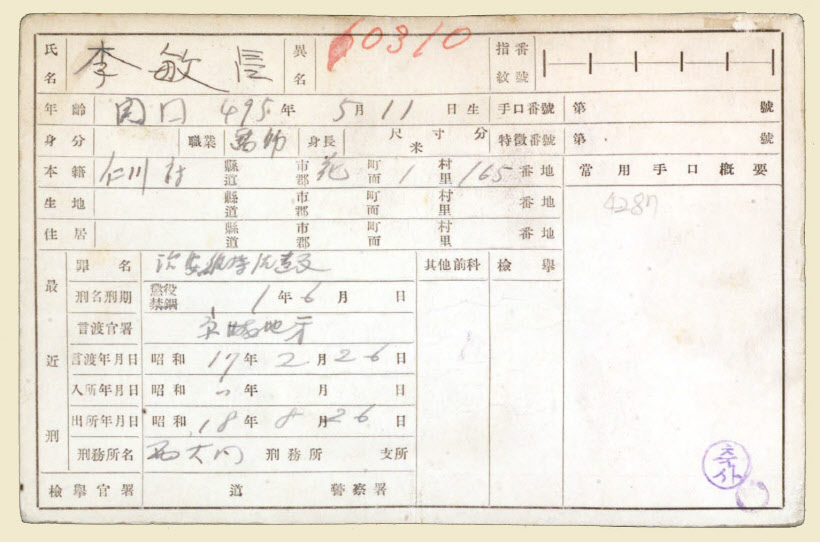 氏名 李敏 異名 60310 指紋番號
年齡 495年 5月11日生 手口番號 第 號
身分 職業 身長 尺寸分 米 特徵番號 第 號
本籍 仁川府 縣道 市郡 花 町面 1 村里 165 番地 常用手口概要
生地 縣道 市郡 町面 村里 番地 4287
住居 縣道 市郡 町面 村里 番地
最近刑 罪名 治安維持法違反 其他前科 檢擧
刑名刑期 懲役禁錮 1年6月 日
言渡官署 京城地
言渡年月日 昭和17年2月26日
入所年月日 昭和 年 月 日
出所年月日 昭和18年8月26日
刑務所名 西大門 刑務所 支所
檢擧官署 道 警察署